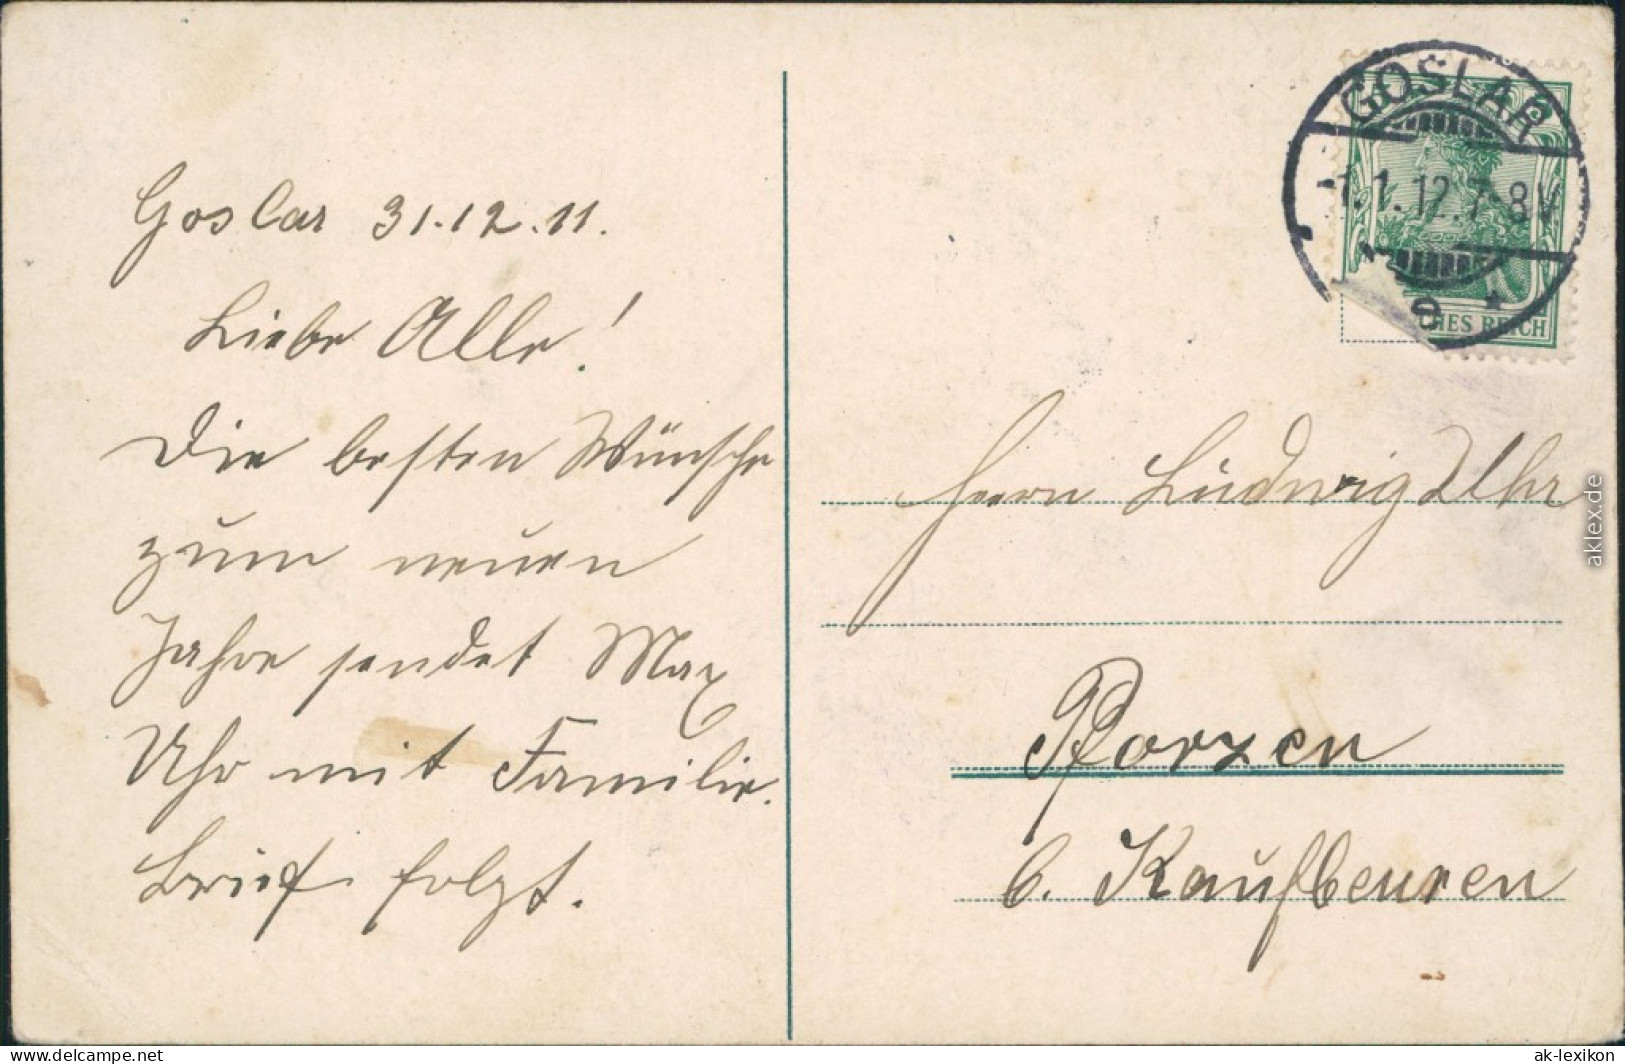 Goslar 31.12.11.
Liebe Alle!
Die besten Wünsche
zum neuen
Jahre sendet Max
Uhr mit Familie.
Brief folgt.
GOSLAR
1.1.12.7-8V
e *
CHES REICH
Herrn Ludwig Uhr
Pforzen
b. Kaufbeuren
aklex.de
www.delcampe.net
ak-lexikon